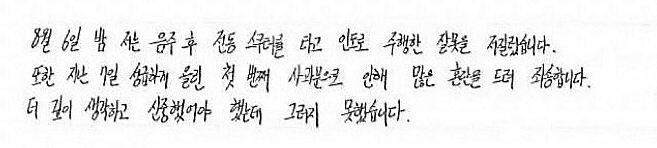 8월 6일 밤 저는 음주 후 전동 스쿠터를 타고 인도로 주행한 잘못을 저질렀습니다.
또한 지난 7일 성급하게 올린 첫 번째 사과문으로 인해 많은 혼란을 드려 죄송합니다.
더 깊이 생각하고 신중했어야 했는데 그러지 못했습니다.